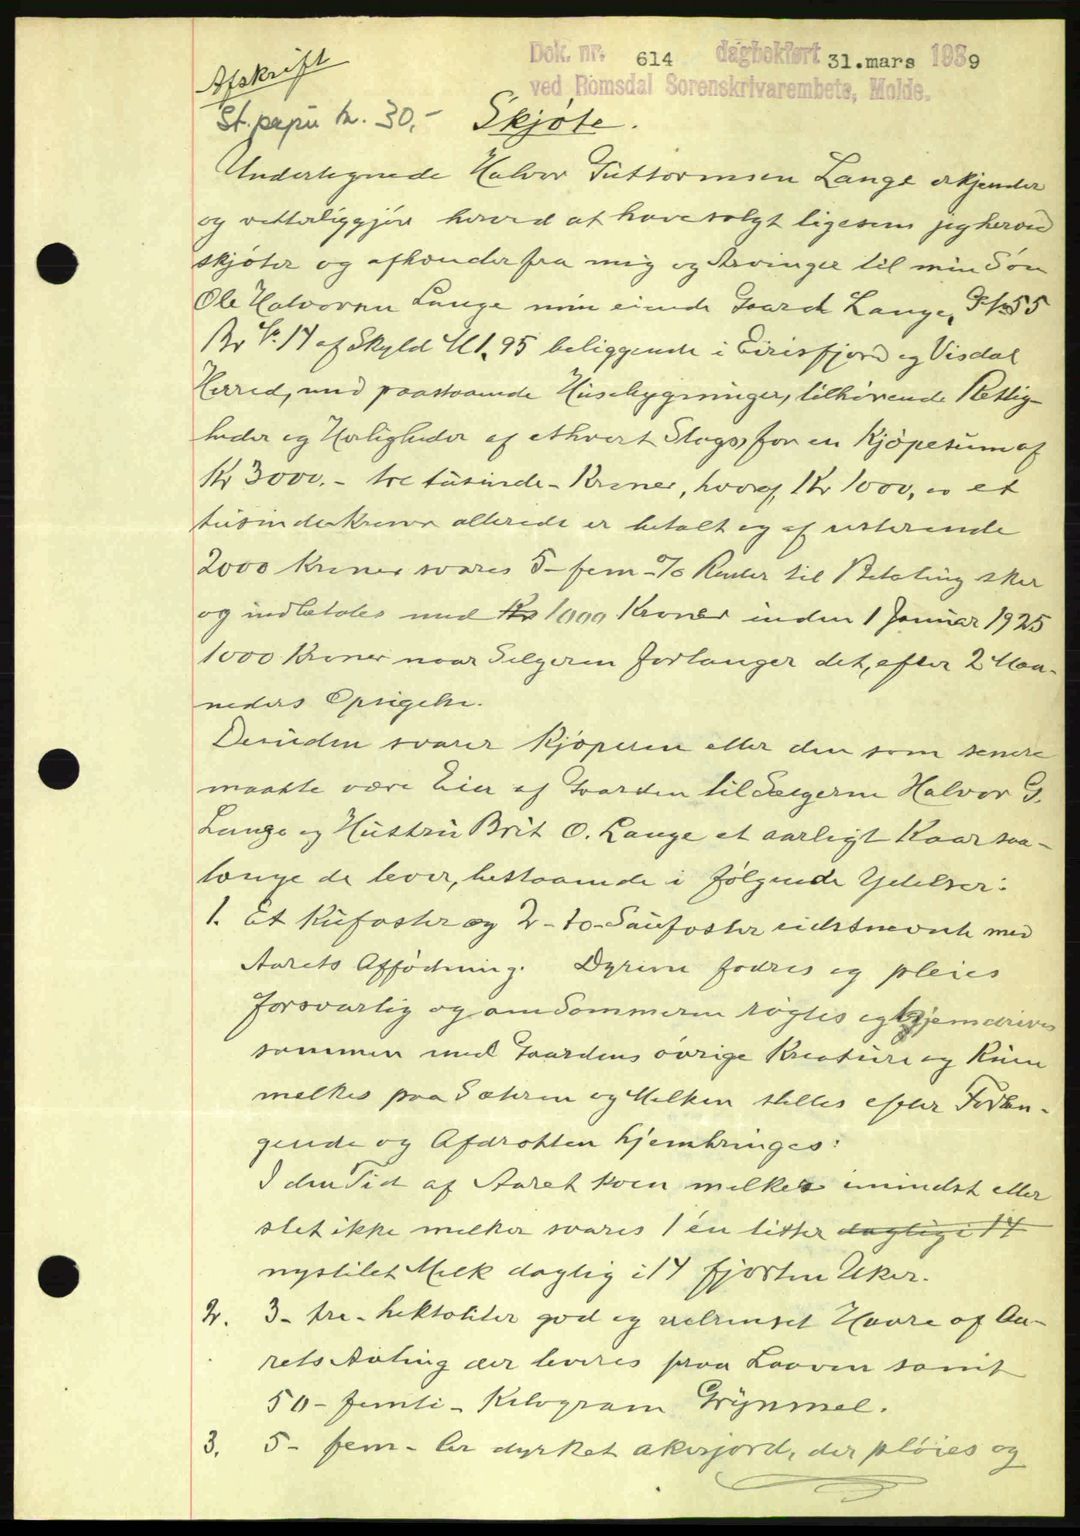 Afskrift
Dok. nr. 614 dagbokført 31.mars 1939
ved Romsdal Sorenskrivarembete, Molde.
St. papir kr. 30,- Skjøte.
Undertegnede Halvor Guttormsen Lange erkjender
og vetterliggjør herved at have solgt ligesom jeg herved
skjøter og afhænder fra mig og Arvinger til min Søn
Ole Halvorsen Lange min eiende Gaard Lange, G. No 55
Br No. 14 af Skyld M 1,95 beliggende i Eirisfjord og Visdal
Herred, med paastaaende Husebygninger, tilhørende Rettig-
heder og Herligheder af ethvert Slags, for en Kjøpesum af
Kr 3000.- tre tusinde- Kroner, hvoraf Kr 1000, et
tusinde kroner allerede er betalt og af resterende
2000 Kroner svares 5- fem-% Renter til Betaling sker
og indbetales med Kr 1000 Kroner inden 1 Januar 1925
1000 Kroner naar Selgeren forlanger det, efter 2 Maa-
neders Opsigelse.
Desuden svarer Kjøperen eller den som senere
maatte være Eier af Gaarden til Sælgerne Halvor G.
Lange og Hustru Brit O. Lange et aarligt Kaar saa-
længe de lever, bestaaende i følgende Ydelser:
1. Et Kufoster og 2- to- Sauefoster sidstnevnte med
Aarets Affødning. Dyrene fodres og pleies
forsvarlig og om Sommeren røgtes og hjemdrives
sammen med Gaardens øvrige Kreature og Kuen
melkes paa Sæteren og Melken stilles efter Forlan-
gende og Afdrotten hjembringes:
I den Tid af Aaret Koen melker imindst eller
slet ikke melker svares 1 én litter daglig i 14
nysilet Melk daglig i 14 fjorten Uker.
2. 3- tre- hektoliter god og velrenset Havre af Aa-
rets Avling der leveres fraa Laaven samt
50- femti- Kilogram Grynmel.
3. 5- fem- Ar dyrket akerjord, der pløies og